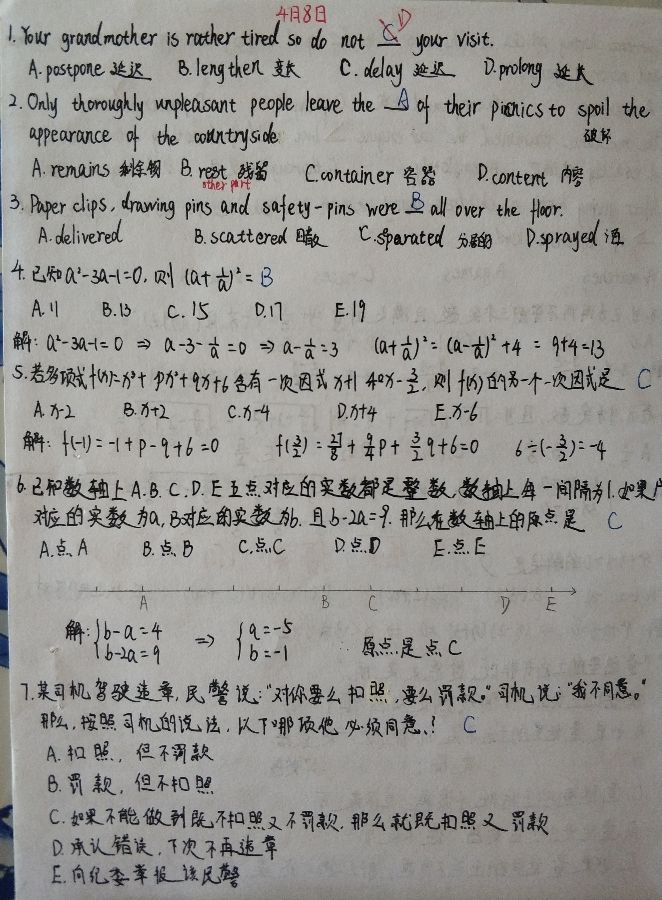 4月8日
1. Your grandmother is rather tired so do not C D your visit.
A. postpone 延迟 B. lengthen 变长 C. delay 延迟 D. prolong 延长
2. Only thoroughly unpleasant people leave the A of their picnics to spoil the
appearance of the countryside 破坏
A. remains 剩余物 B. rest 残留 C. container 容器 D. content 内容
other part
3. Paper clips, drawing pins and safety-pins were B all over the floor.
A. delivered B. scattered 散 C. sparated D. sprayed 洒
4. 已知a²-3a-1=0, 则 (a+1/a)² = B
A. 11 B. 13 C. 15 D. 17 E. 19
解: a²-3a-1=0 ⇒ a-3-1/a=0 ⇒ a-1/a=3 (a+1/a)² = (a-1/a)²+4 = 9+4=13
5. 若多项式f(x)=x³+px²+qx+6含有一次因式x+1和x-3/2, 则f(x)的另一个一次因式是 C
A. x-2 B. x+2 C. x-4 D. x+4 E. x-6
解: f(-1)=-1+p-q+6=0 f(3/2)=27/8+9/4p+3/2q+6=0 6÷(-3/2)=-4
6. 已知数轴上A.B.C.D.E五点对应的实数都是整数,数轴上每一间隔为1.如果A
对应的实数为a, B对应的实数为b. 且b-2a=9. 那么在数轴上的原点是 C
A. 点A B. 点B C. 点C D. 点D E. 点E
A B C D E
解: {b-a=4 ⇒ {a=-5 ∴原点是点C
b-2a=9 b=-1
7. 某司机驾驶违章,民警说:"对你要么扣照,要么罚款。"司机说:"我不同意。"
那么,按照司机的说法,以下哪项他必须同意? C
A. 扣照, 但不罚款
B. 罚款, 但不扣照
C. 如果不能做到既不扣照又不罚款, 那么就既扣照又罚款
D. 承认错误, 下次不再违章
E. 向纪委举报该民警